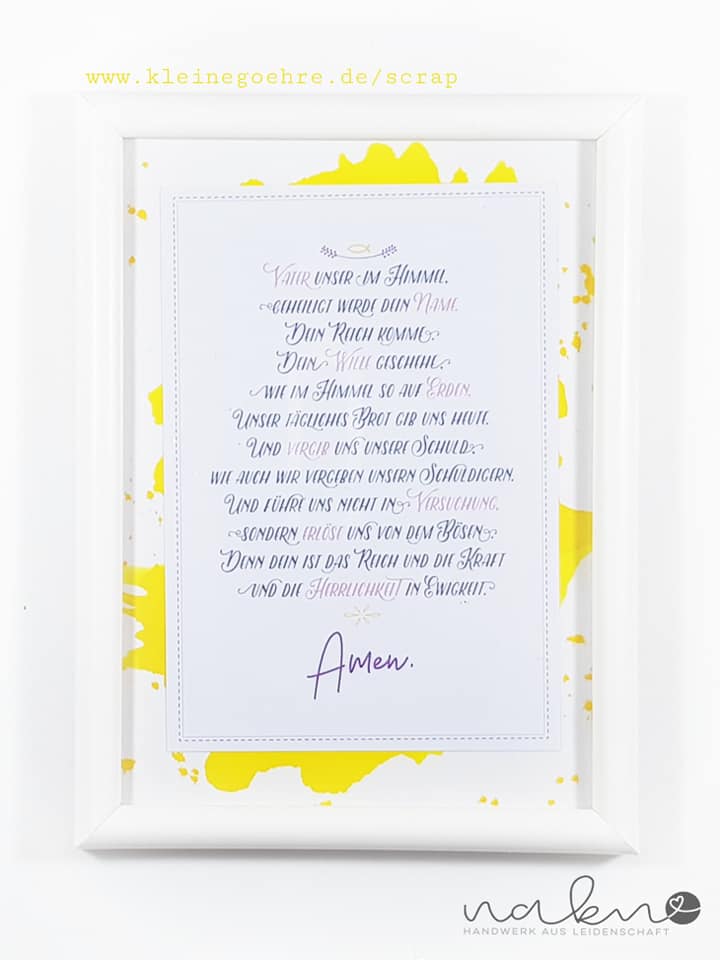 www.kleinegoehre.de/scrap
Vater unser im Himmel,
geheiligt werde dein Name.
Dein Reich komme.
Dein Wille geschehe,
wie im Himmel so auf Erden.
Unser tägliches Brot gib uns heute.
Und vergib uns unsere Schuld,
wie auch wir vergeben unsern Schuldigern.
Und führe uns nicht in Versuchung,
sondern erlöse uns von dem Bösen.
Denn dein ist das Reich und die Kraft
und die Herrlichkeit in Ewigkeit.
Amen.
HANDWERK AUS LEIDENSCHAFT